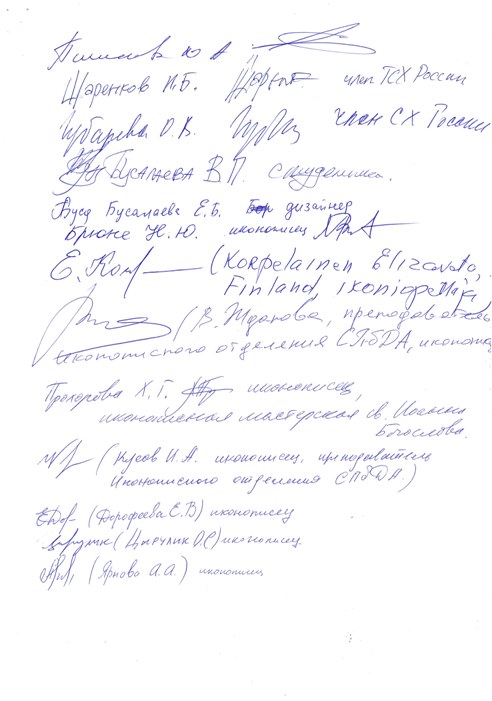 Ю А
Щаренков И.Б. член ТСХ России
Губарева О.В. член СХ России
Бусалаева В П. студентка.
Бусалаева Е.Б. дизайнер
Брюне Н.Ю. иконописец
E. Kor (Korpelainen Elizaveta,
Finland, ikonop
(В. Жданова, преподаватель
иконописного отделения СПбДА, иконопис
Прохорова Х.Г. иконописец,
иконописная мастерская св. Иоанна
Богослова.
(Кусов И.А. иконописец, преподаватель
Иконописного отделения СПбДА.)
(Дорофеева Е.В) иконописец
(Цырулик О.С) иконописец.
(Ярнова А.А.) иконописец